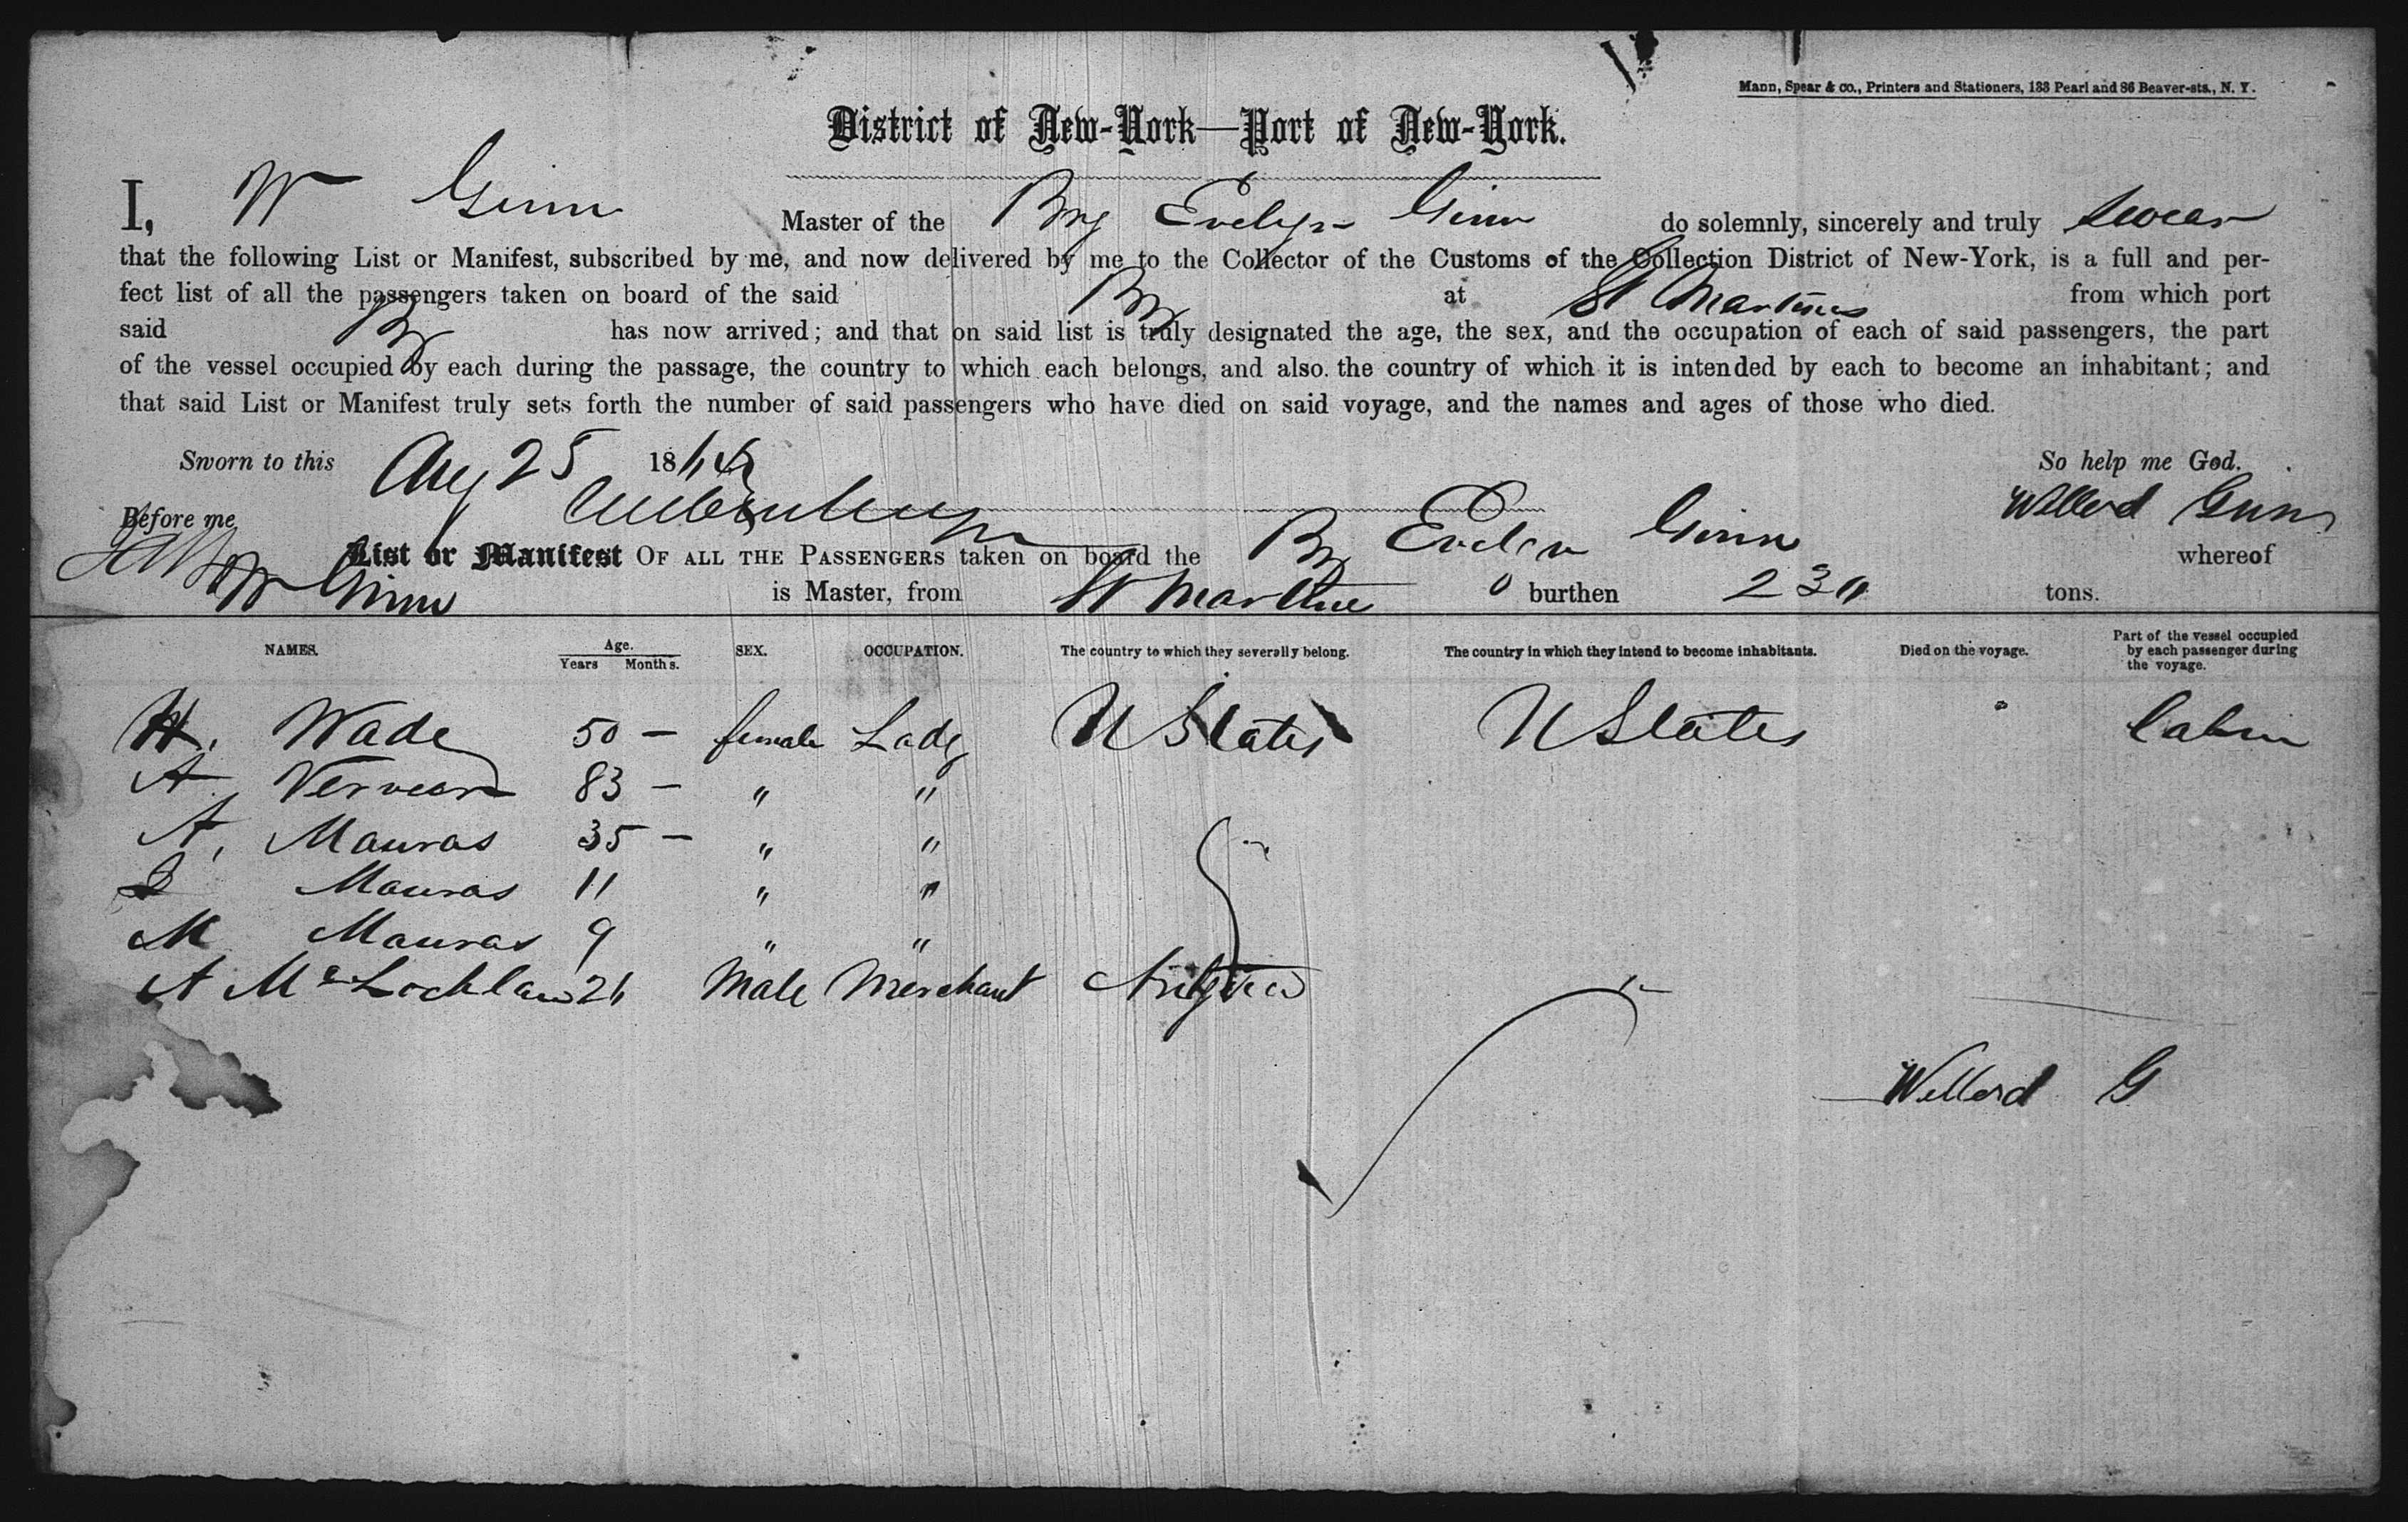 Mann, Spear & co., Printers and Stationers, 133 Pearl and 86 Beaver-sts., N. Y.
District of New-York—Port of New-York.
I, W Ginn Master of the Brig Evelyn Ginn do solemnly, sincerely and truly swear
that the following List or Manifest, subscribed by me, and now delivered by me to the Collector of the Customs of the Collection District of New-York, is a full and per-
fect list of all the passengers taken on board of the said Br at St Martins from which port
said Br has now arrived; and that on said list is truly designated the age, the sex, and the occupation of each of said passengers, the part
of the vessel occupied by each during the passage, the country to which each belongs, and also the country of which it is intended by each to become an inhabitant; and
that said List or Manifest truly sets forth the number of said passengers who have died on said voyage, and the names and ages of those who died.
Sworn to this Aug 25 18 So help me God.
Before me Willard Ginn
List or Manifest OF ALL THE PASSENGERS taken on board the Br Evelyn Ginn whereof
W Ginn is Master, from St Martins burthen tons.
NAMES. Age. Years Months. SEX. OCCUPATION. The country to which they severally belong. The country in which they intend to become inhabitants. Died on the voyage. Part of the vessel occupied by each passenger during the voyage.
H. Wade 50 — female Lady U States U States Cabin
A Verveer 83 — " "
A. Mauras 35 — " "
Mauras 11 " "
M Mauras 9 " "
A McLochlan 26 Male Merchant Antigua
Willard G